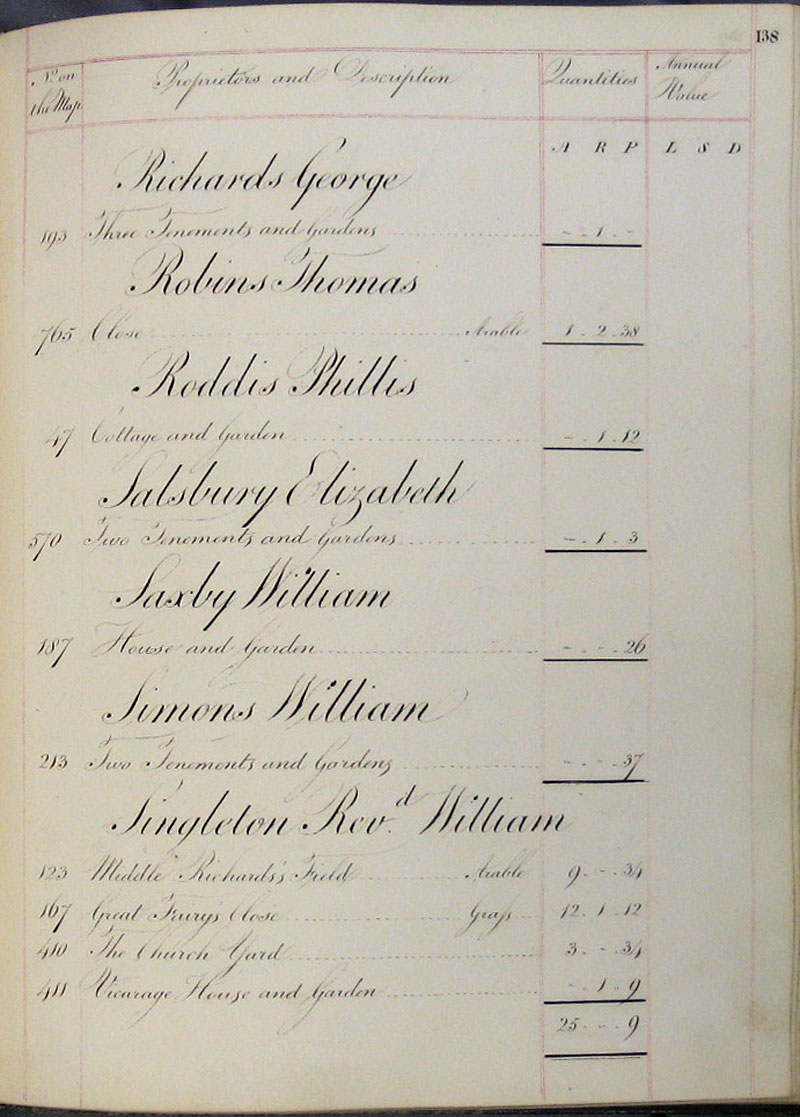 138
No. on the Map Proprietors and Description Quantities Annual Value
A R P L S D
Richards George
193 Three Tenements and Gardens - 1 -
Robins Thomas
765 Close Arable 1 . 2 . 38
Roddis Phillis
47 Cottage and Garden - . 1 . 12
Salsbury Elizabeth
570 Two Tenements and Gardens - . 1 . 3
Saxby William
187 House and Garden - . - . 26
Simons William
213 Two Tenements and Gardens - . - . 37
Singleton Revd. William
123 Middle Richards's Field Arable 9 . - . 34
167 Great Fairy's Close Grass 12 . 1 . 12
410 The Church Yard 3 . - . 34
411 Vicarage House and Garden - . 1 . 9
25 . - . 9